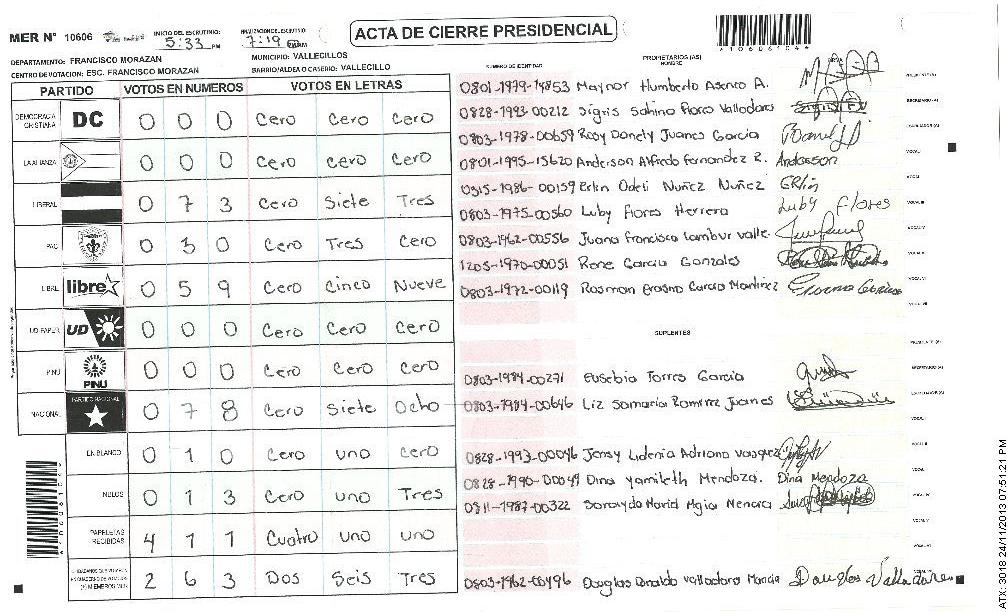 MER Nº 10606
INICIO DEL ESCRUTINIO:
5:33 PM
FINALIZACION DEL ESCRUTINIO
7:19
ACTA DE CIERRE PRESIDENCIAL
DEPARTAMENTO: FRANCISCO MORAZAN
MUNICIPIO: VALLECILLOS
CENTRO DE VOTACION: ESC. FRANCISCO MORAZAN
BARRIO/ALDEA O CASERIO: VALLECILLO
PARTIDO VOTOS EN NUMEROS VOTOS EN LETRAS
DEMOCRACIA CRISTIANA DC 0 0 0 Cero Cero Cero
LA ALIANZA 0 0 0 Cero Cero Cero
LIBERAL 0 7 3 Cero Siete Tres
PAC 0 3 0 Cero Tres Cero
LIBRE libre 0 5 9 Cero Cinco Nueve
UD-FAPER UD 0 0 0 Cero Cero Cero
PINU PINU 0 0 0 Cero Cero Cero
NACIONAL PARTIDO NACIONAL 0 7 8 Cero Siete Ocho
EN BLANCO 0 1 0 Cero uno Cero
NULOS 0 1 3 Cero uno Tres
PAPELETAS RECIBIDAS 4 1 1 Cuatro uno uno
2 6 3 Dos Seis Tres
NUMERO DE IDENTIDAD
PROPIETARIOS (AS)
NOMBRE
0801-1979-14853 Maynor Humberto Asenco A.
0828-1993-00212 Sigris Sahino Flores Valladares
0803-1978-00659 Rosy Donely Juanes Garcia
0801-1995-15620 Anderson Alfredo Fernandez R. Anderson
0315-1986-00159 Erlin Odeli Nuñez Nuñez Erlin
0803-1975-00560 Luby Flores Herrera Luby Flores
0803-1962-00556 Juana Francisca Lambur Valle.
1205-1970-00051 Rene Garcia Gonzales
0803-1972-00119 Rosman Erasno Garcia Martinez
SUPLENTES
0803-1984-00271 Eusebio Torres Garcia
0803-1984-00646 Liz Samaria Ramirez Juanes
0828-1993-00046 Jensy Lidenia Adriano Vasquez
0828-1990-00049 Dina Yamileth Mendoza. Dina Mendoza
0811-1987-00322
0803-1962-00496 Douglas Donaldo Valladares Douglas Valladares
ATX: 3018 24/11/2013 07:51:21 PM